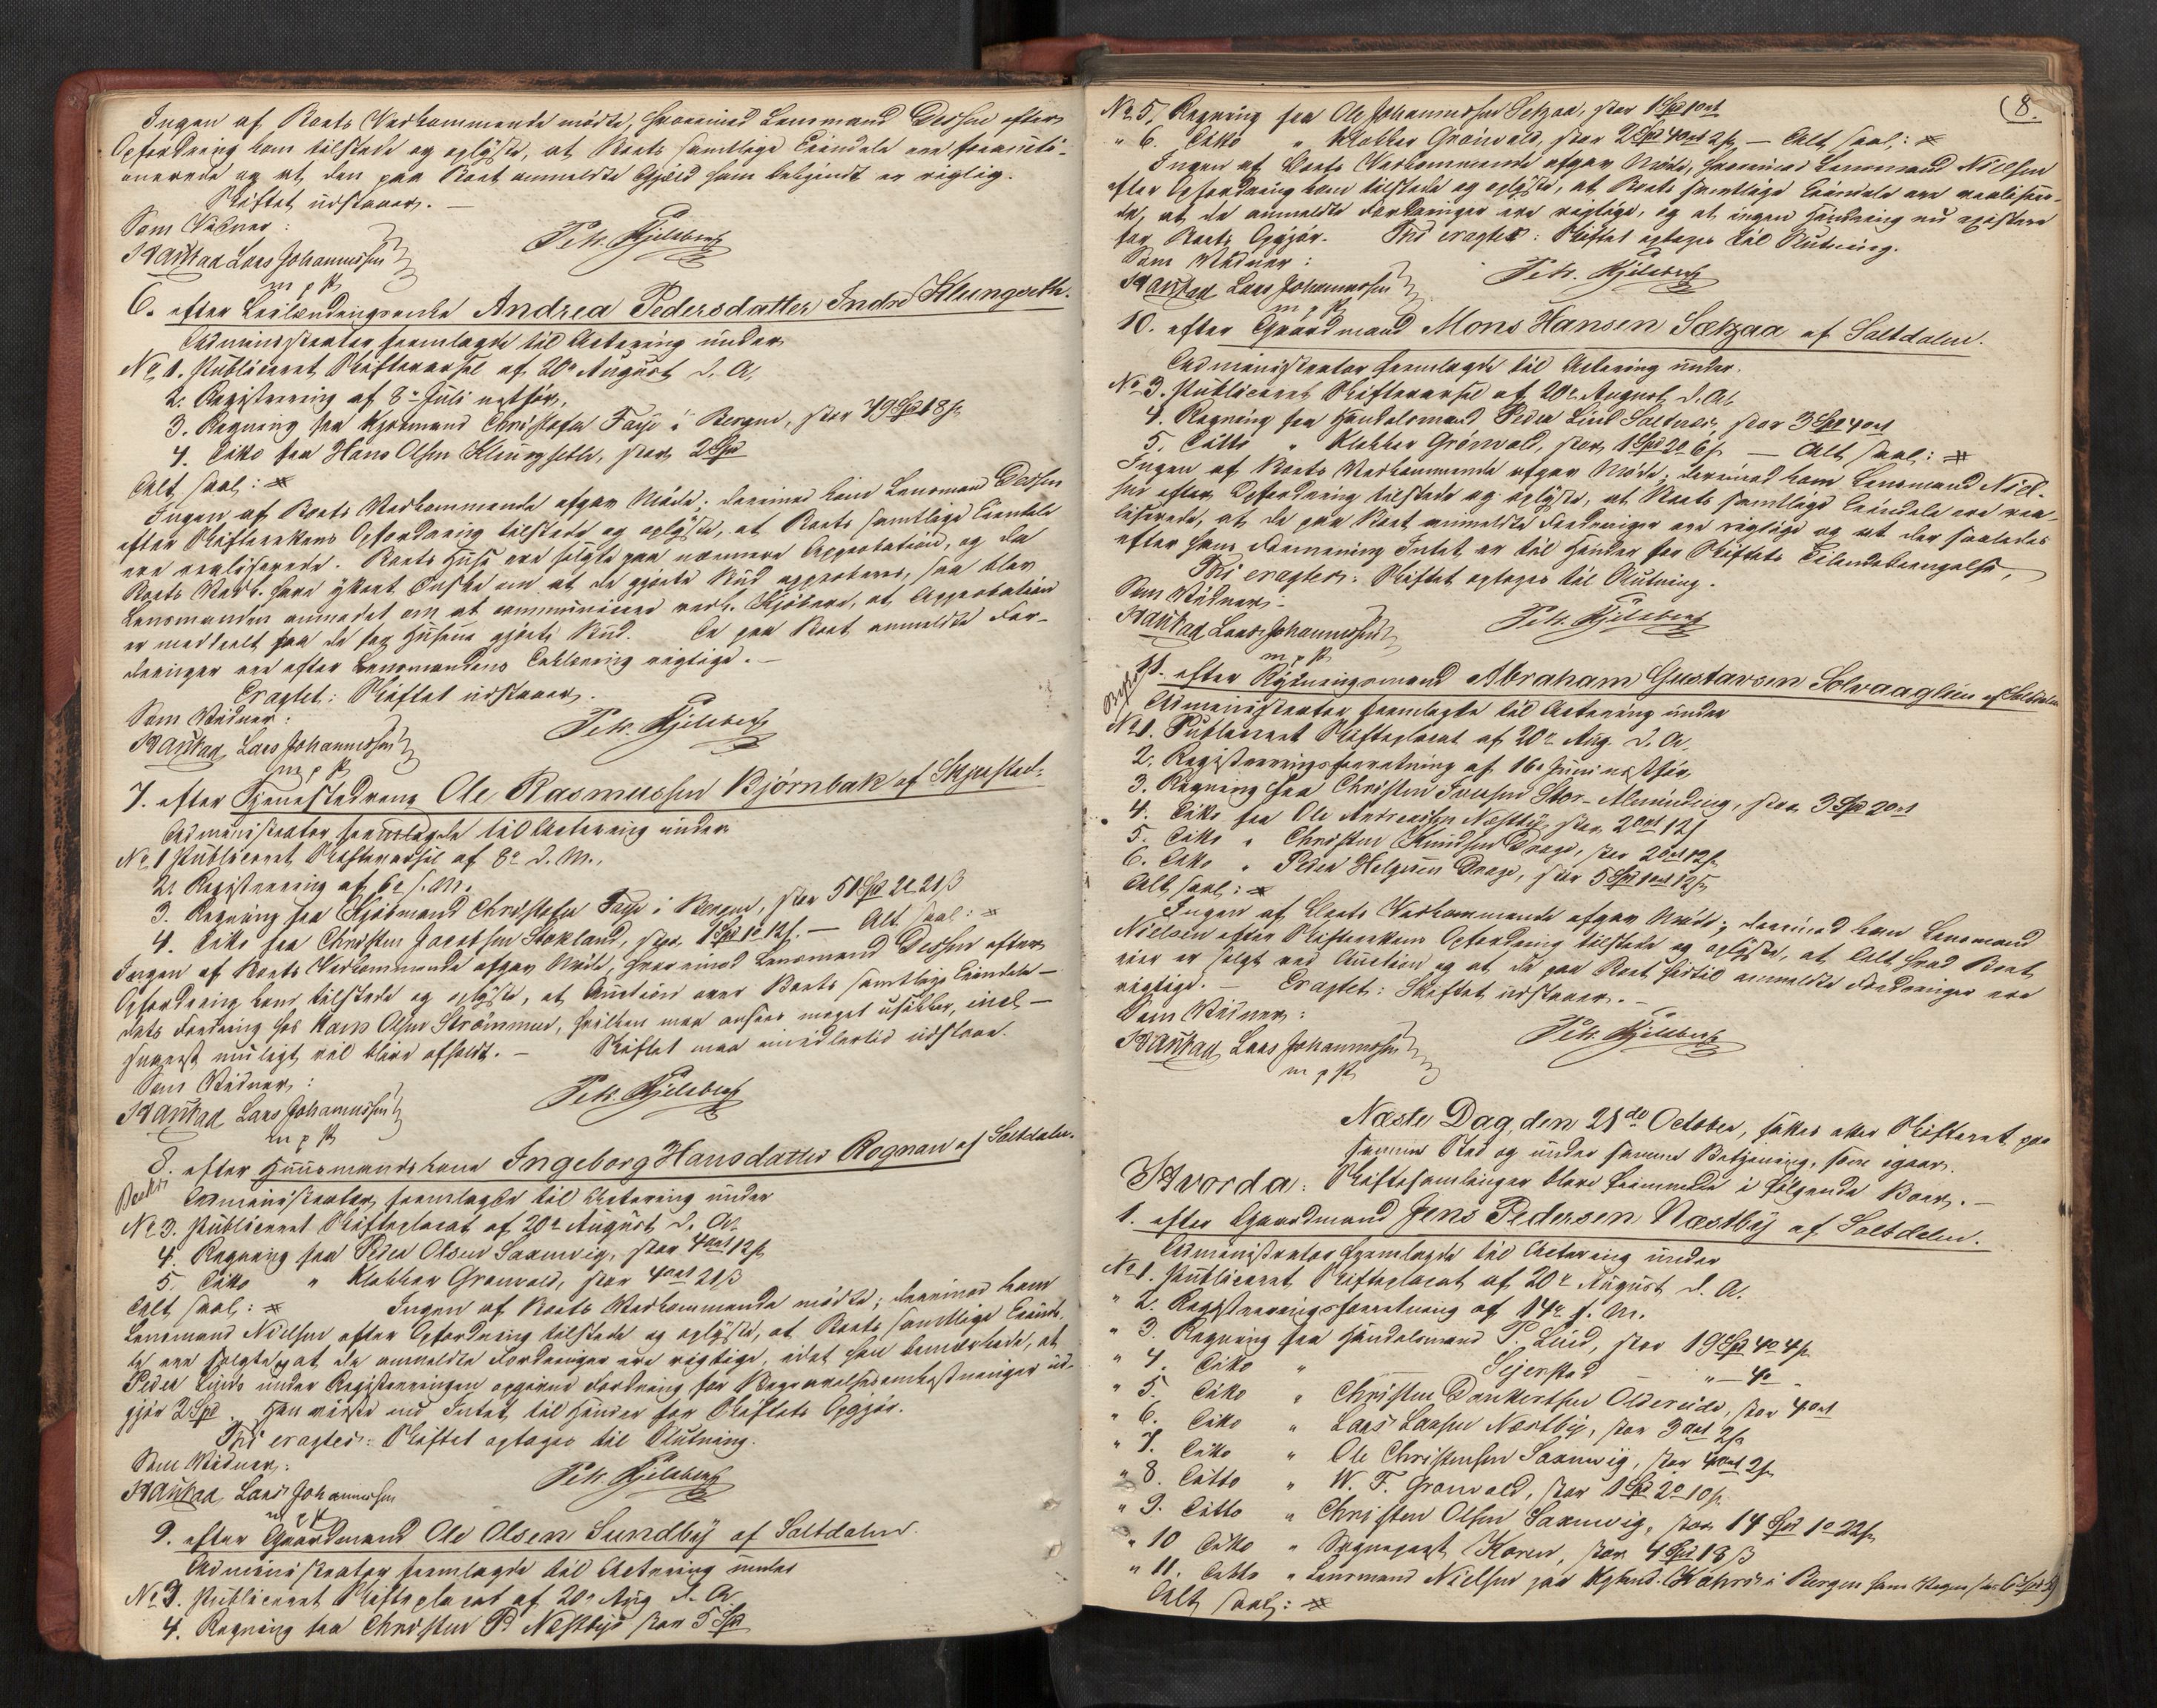 Ingen af Boets Vedkommende mødte, hvorimod Lensmand Dedsen efter
Opfordring kom tilstede og oplyste, at Boets samtlige Eiendele ere foraucti-
onerede og at den paa Boet anmeldte Gjæld som bekjendt er rigtig.
Skiftet udstaaer. —
Som Vidner:
Haukad Lars Johannessen
m p P.
Petr. Gjelsberg
6. efter Leilændingsenke Andrea Pedersdatter Indre Klungseth.
Administrator fremlagde til Actering under
No 1. Publiceret Skiftevarsel af 20de August d. A.
2. Registrering af 8de Juli næstfør,
3. Regning fra Kjøbmand Christofer Faye i Bergen, stor 49 Spd 18 s.
4. Ditto fra Hans Olsen Klungseth, stor 2 Spd
Alt saal:
Ingen af Boets Vedkommende afgav Møde; derimod kom Lensmand Dedsen
efter Skifterettens Opfordring tilstede og oplyste, at Boets samtlige Eiendele
ere realiserede. Boets Huse ere solgte paa nærmere Approbation, og da
Boets Vedk. have yttret Ønske om at de gjorte Bud approberes, saa blev
Lensmanden anmodet om at communicere vedk. Kjøbere, at Approbation
er meddeelt paa de for Husene gjorte Bud. De paa Boet anmeldte For-
dringer ere efter Lensmandens Erklæring rigtige. —
Eragtet: Skiftet udstaaer.
Som Vidner:
Haukad Lars Johannessen
m p P.
Petr. Gjelsberg
7. efter Tjenestedreng Ole Rasmussen Bjørnbak af Skjerstad.
Administrator fremlagde til Actering under
No 1 Publiceret Skiftevarsel af 8de d. M.,
2. Registrering af 6te s. M.
3. Regning fra Kjøbmand Christofer Faye i Bergen, stor 51 Spd 2 o 21 ß
4. Ditto fra Christen Jacobsen Stokland, stor 1 Spd 1 o 12 s. — Alt saal:
Ingen af Boets Vedkommende afgav Møde, hvorimod Lensmand Dedsen efter
Opfordring kom tilstede og oplyste, at Auction over Boets samtlige Eiendele —
dets Fordring hos Hans Olsen Strømmen, hvilken man anseer meget usikker, incl —
snarest muligt vil blive afholdt. — Skiftet maa imidlertid udstaae.
Som Vidner:
Haukad Lars Johannessen
m p P.
Petr. Gjelsberg
8. efter Huusmandskone Ingeborg Hansdatter Rognan af Saltdalen.
Administrator fremlagde til Actering under
No 3. Publiceret Skifteplacat af 20de August d. A.
4. Regning fra Peder Olsen Saxenvig, stor 4 ort 12 s.
5. Ditto " Klokker Grønvold, stor 4 ort 21 ß
Alt saal: Ingen af Boets Vedkommende mødte; derimod kom
Lensmand Nielsen efter Opfordring tilstede og oplyste, at Boets samtlige Eiende-
le ere solgte og at de anmeldte Fordringer ere rigtige, idet han bemærkede, at
Peder Linds under Registreringen opgivne Fordring for Begravelsesomkostninger ud-
gjør 2 Spd. Han vidste nu Intet til Hinder for Skiftets Opgjør.
Thi eragtes: Skiftet optages til Slutning.
Som Vidner:
Haukad Lars Johannessen
m p P
Petr. Gjelsberg
9. efter Gaardmand Ole Olsen Sundby af Saltdalen.
Administrator fremlagde til Actering under
No 3. Publiceret Skifteplacat af 20de Aug d. A.
4. Regning fra Christen P. Næstby stor 5 Spd
8.
No 5. Regning fra Ole Johannessen Setzaa, stor 1 Spd 1 ort
" 6. Ditto " Klokker Grønvold, stor 2 Spd 4 ort 2 s. — Alt saal:
Ingen af Boets Vedkommende afgav Møde, hvorimod Lensmand Nielsen
efter Opfordring kom tilstede og oplyste, at Boets samtlige Eiendele ere realisere-
de, at de anmeldte Fordringer ere rigtige, og at ingen Hindring nu existere
for Boets Opgjør. Thi eragtes: Skiftet optages til Slutning.
Som Vidner:
Haukad Lars Johannessen
m p P.
Petr. Gjelsberg
10. efter Gaardmand Mons Hansen Sætzaa af Saltdalen.
Administrator fremlagde til Actering under
No 3. Publiceret Skiftevarsel af 20de August d. A.
4. Regning fra Handelsmand Peder Lind Saltnes, stor 3 Spd 4 ort
5. Ditto " Klokker Grønvold, stor 1 Spd 2 o 6 s. — Alt saal:
Ingen af Boets Vedkommende afgav Møde; derimod kom Lensmand Niel-
sen efter Opfordring tilstede og oplyste, at Boets samtlige Eiendele ere rea-
liserede, at de paa Boet anmeldte Fordringer ere rigtige og at der saaledes
efter hans Formening Intet er til Hinder for Skiftets Tilendebringelse,
Thi eragtes: Skiftet optages til Slutning.
Som Vidner:
Haukad Lars Johannessen
m p P.
Petr. Gjelsberg
11. efter Rydningsmand Abraham Gustavsen Solvaaglien af Saltdalen
Administrator fremlagde til Actering under
No 1. Publiceret Skifteplacat af 20de Aug. d. A.
2. Registreringsforretning af 16de Juni næstfør,
3. Regning fra Christen Jensen Stor-Almending, stor 3 Spd 2 ort
4. Ditto fra Ole Andreassen Næstby, stor 2 ort 12 s
5. Ditto " Christen Knudsen Drage, stor 2 ort 12 s.
6. Ditto " Peder Helgesen Drage, stor 5 Spd 1 ort 12 s.
Alt saal:
Ingen af Boets Vedkommende afgav Møde; derimod kom Lensmand
Nielsen efter Skifterettens Opfordring tilstede og oplyste, at Alt hvad Boet
eier er solgt ved Auction og at de paa Boet hidtil anmeldte Fordringer ere
rigtige. — Eragtet: Skiftet udstaaer. —
Som Vidner:
Haukad Lars Johannessen
m p P.
Petr. Gjelsberg
Næste Dag, den 21de October, sattes atter Skifteret paa
samme Sted og under samme Betjening, som igaar.
Hvorda: Skiftesamlinger bleve fremmede i følgende Boer. —
1. efter Gaardmand Jens Pedersen Næstby af Saltdalen.
Administrator fremlagde til Actering under
No 1. Publiceret Skifteplacat af 20de August d. A.
" 2. Registreringsforretning af 14de s. M.
" 3. Regning fra Handelsmand P. Lind, stor 19 Spd 4 o 4 s.
" 4. Ditto " Sejersted — " — 4 o
" 5. Ditto " Christen Dankertsen Oldereide, stor 4 ort
" 6. Ditto " Lars Larsen Næstby, stor 3 ort 2 s.
" 7. Ditto " Ole Christensen Saxenvig, stor 4 ort 2 s.
" 8. Ditto " W. F. Grønvold, stor 1 Spd 2 o 10 s.
" 9. Ditto " Christen Olsen Saxenvig, stor 14 Spd 1 o 22 s.
" 10 Ditto " Sognepræst Koren, stor 4 Spd 18 ß
" 11. Ditto " Lensmand Nielsen paa Kjbmd. Kahrs i Bergen hans Vegne
Alt saal: